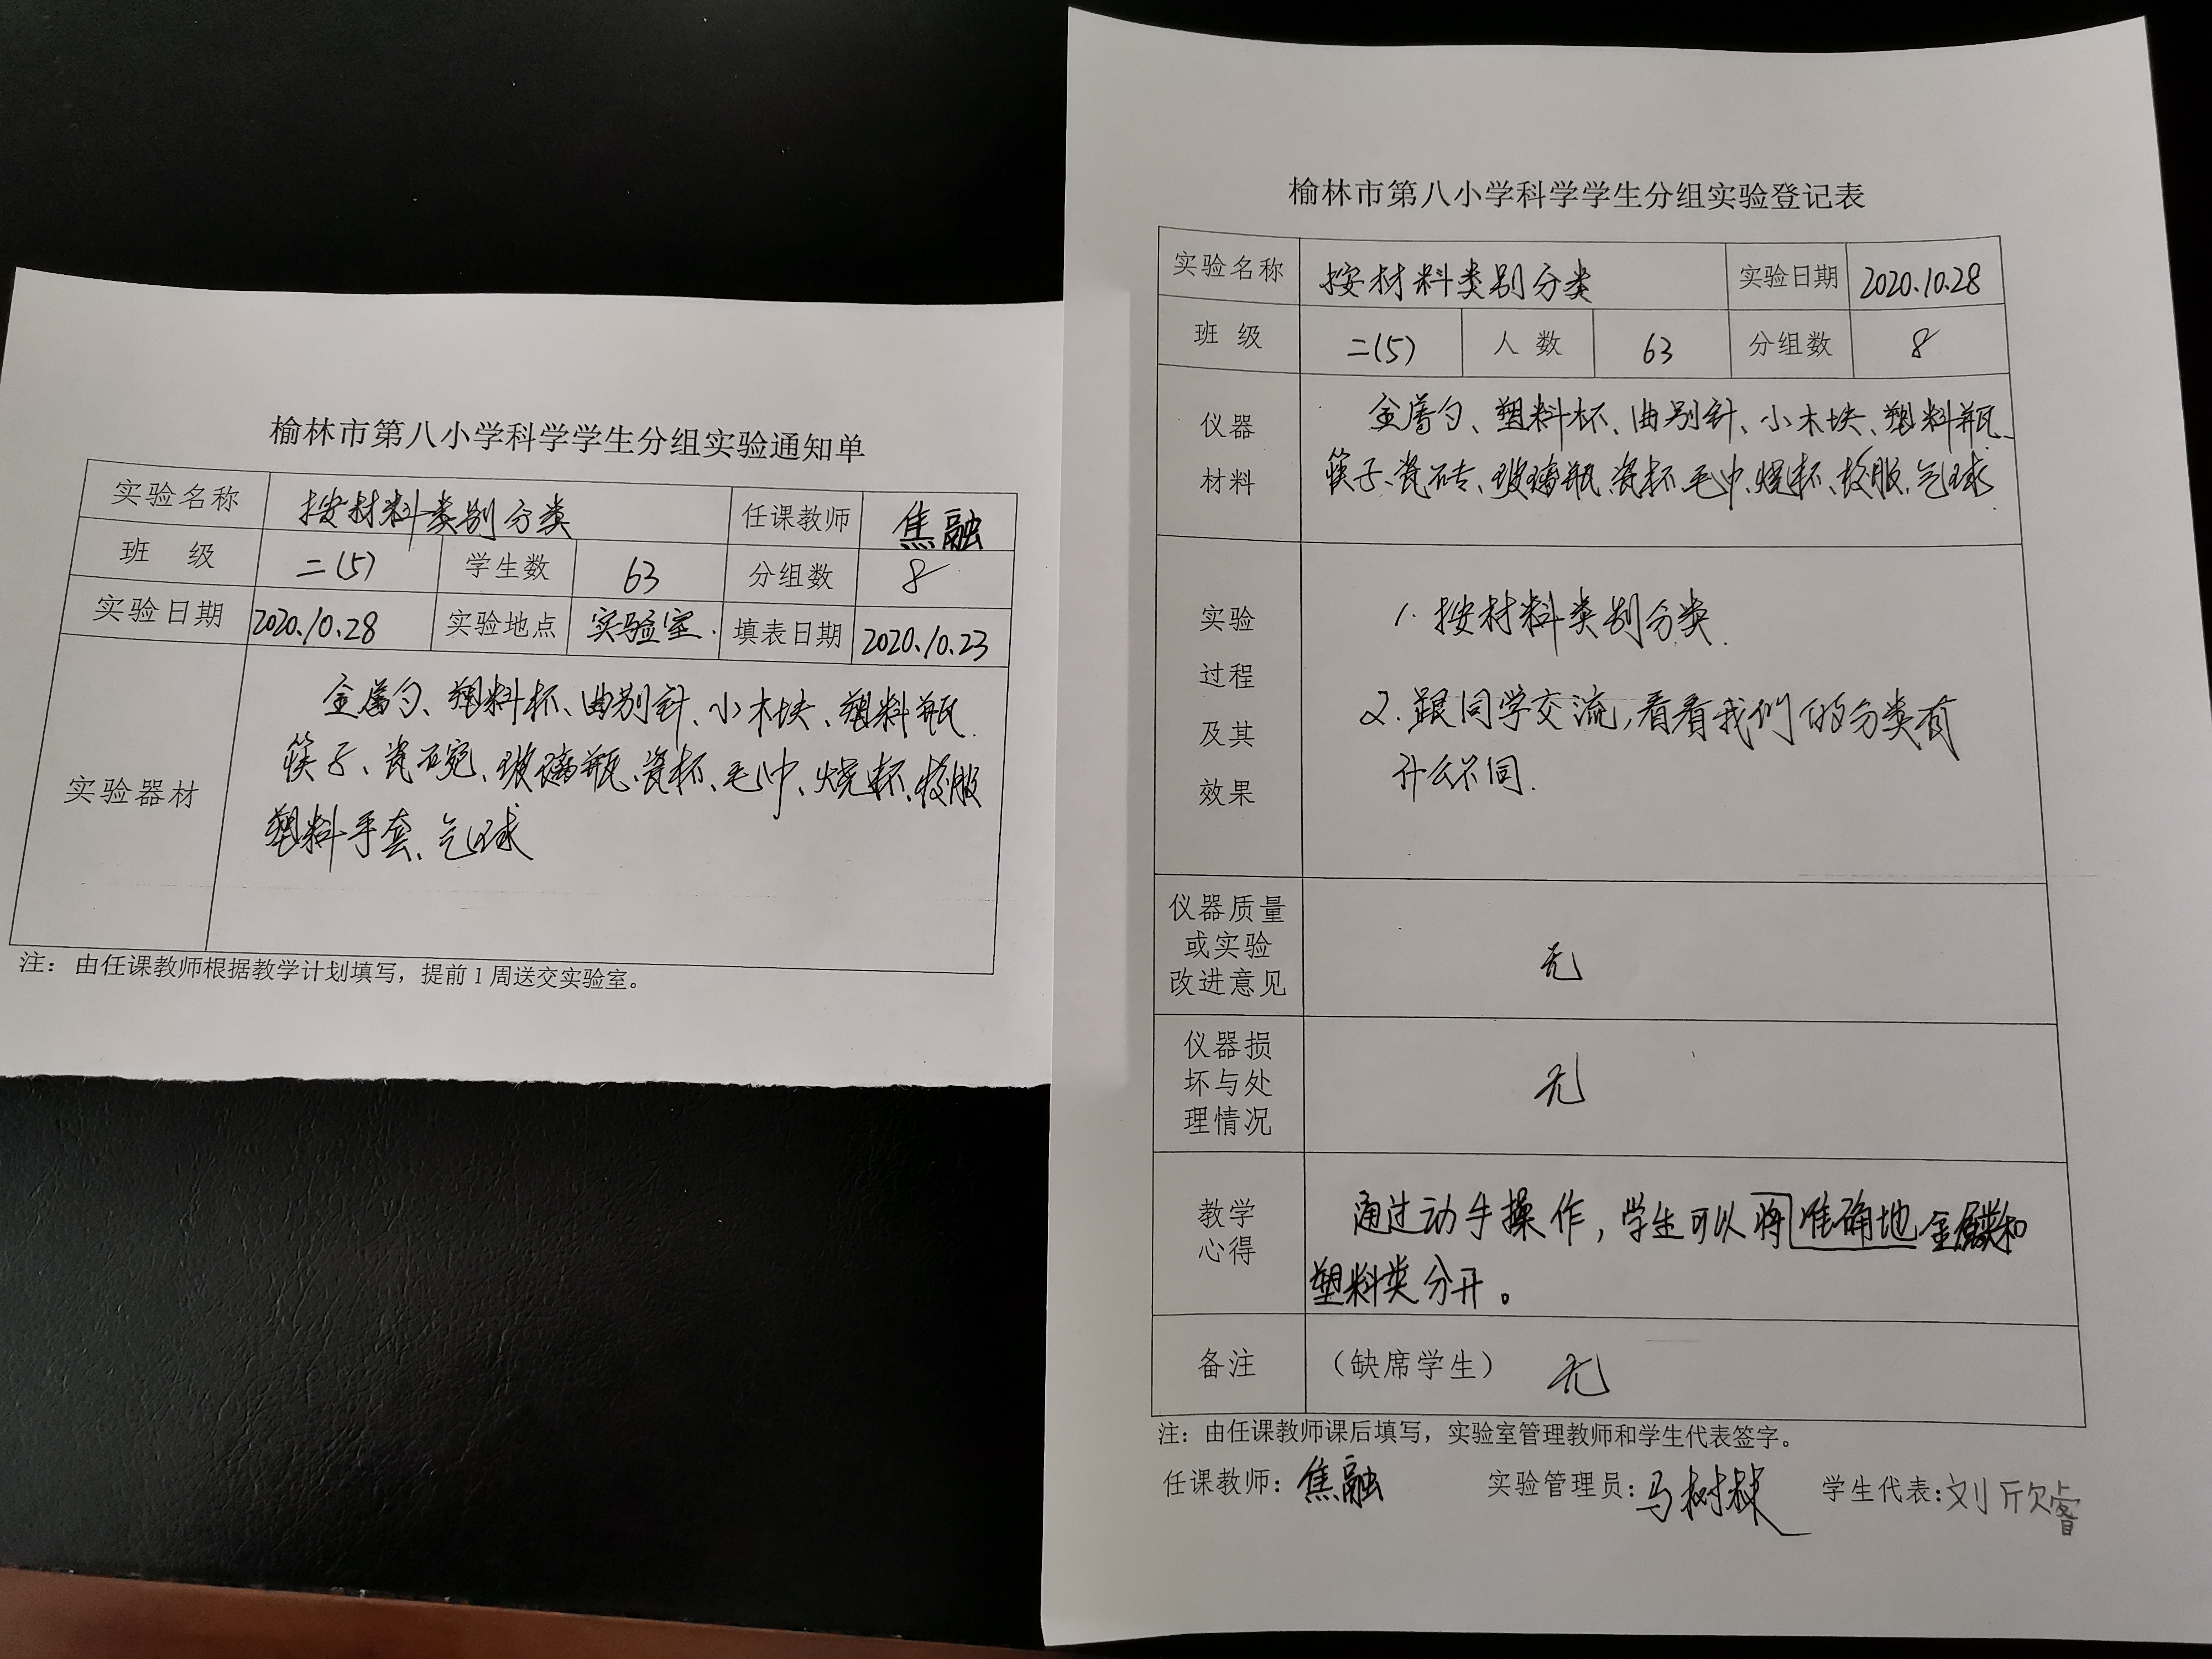 榆林市第八小学科学学生分组实验通知单
实验名称 按材料类别分类 任课教师 焦融
班 级 二(5) 学生数 63 分组数 8
实验日期 2020.10.28 实验地点 实验室. 填表日期 2020.10.23
实验器材
金属勺、塑料杯、曲别针、小木块、塑料瓶
筷子、瓷碗、玻璃瓶、瓷杯、毛巾、烧杯、校服
塑料手套、气球
注：由任课教师根据教学计划填写，提前1周送交实验室。
榆林市第八小学科学学生分组实验登记表
实验名称 按材料类别分类 实验日期 2020.10.28
班 级 二(5) 人 数 63 分组数 8
仪器
材料
金属勺、塑料杯、曲别针、小木块、塑料瓶、
筷子、瓷砖、玻璃瓶、瓷杯、毛巾、烧杯、校服、气球
实验
过程
及其
效果
1. 按材料类别分类.
2. 跟同学交流,看看我们的分类有
什么不同.
仪器质量
或实验
改进意见
无
仪器损
坏与处
理情况
无
教学
心得
通过动手操作,学生可以将准确地金属类和
塑料类分开。
备注 （缺席学生） 无
注：由任课教师课后填写，实验室管理教师和学生代表签字。
任课教师：焦融 实验管理员：马树林 学生代表：刘欣睿